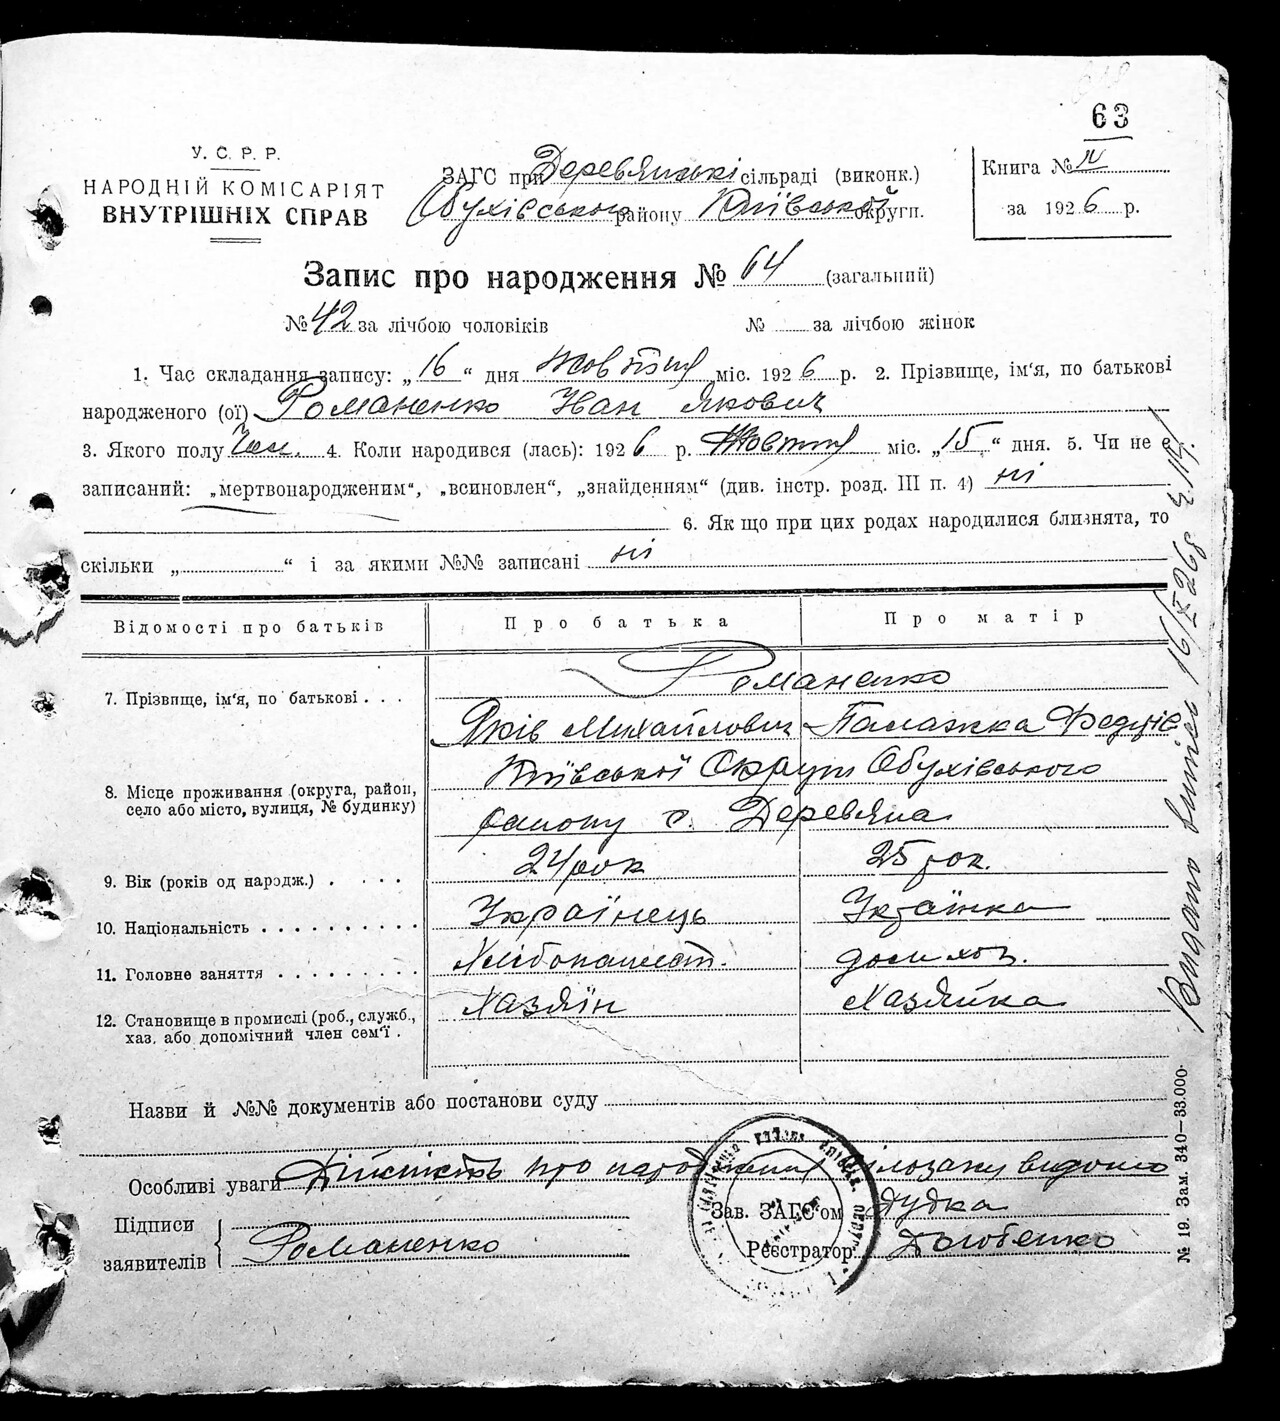 63
У. С. Р. Р.
НАРОДНІЙ КОМІСАРІЯТ
ВНУТРІШНІХ СПРАВ
ЗАГС при Деревянській сільраді (виконк.)
Обухівського району Київської округи.
Книга № IV
за 1926 р.
Запис про народження № 64 (загальний)
№ 42 за лічбою чоловіків № за лічбою жінок
1. Час складання запису: „16“ дня Жовтня міс. 1926 р. 2. Прізвище, ім'я, по батькові
народженого (ої) Романенко Іван Якович
3. Якого полу Чол. 4. Коли народився (лась): 1926 р. Жовтня міс. „15“ дня. 5. Чи не є
записаний: „мертвонародженим“, „всиновлен“, „знайденням“ (див. інстр. розд. III п. 4) ні
6. Як що при цих родах народилися близнята, то
скільки „ “ і за якими №№ записані ні
Відомості про батьків Про батька Про матір
7. Прізвище, ім'я, по батькові . . . Романенко
Яків Михайлович Паламжка Федорів
8. Місце проживання (округа, район, село або місто, вулиця, № будинку) Київської Округи Обухівського
району с. Деревяна
9. Вік (років од народж.) . . . . . 24 рок 25 рок.
10. Національність . . . . . . . . . . Українець Українка
11. Головне заняття . . . . . . . . . Хлібопашест. дом хоз.
12. Становище в промислі (роб., служб., хаз. або допомічний член сем'ї . Хазяїн Хазяйка
Назви й №№ документів або постанови суду
Особливі уваги Дійсність про народження видано
Підписи
заявителів
Романенко
Зав. ЗАГС'ом Дудка
Реєстратор
№ 19. Зам. 340—33.000.
Видано витяг 16/X 26 р.